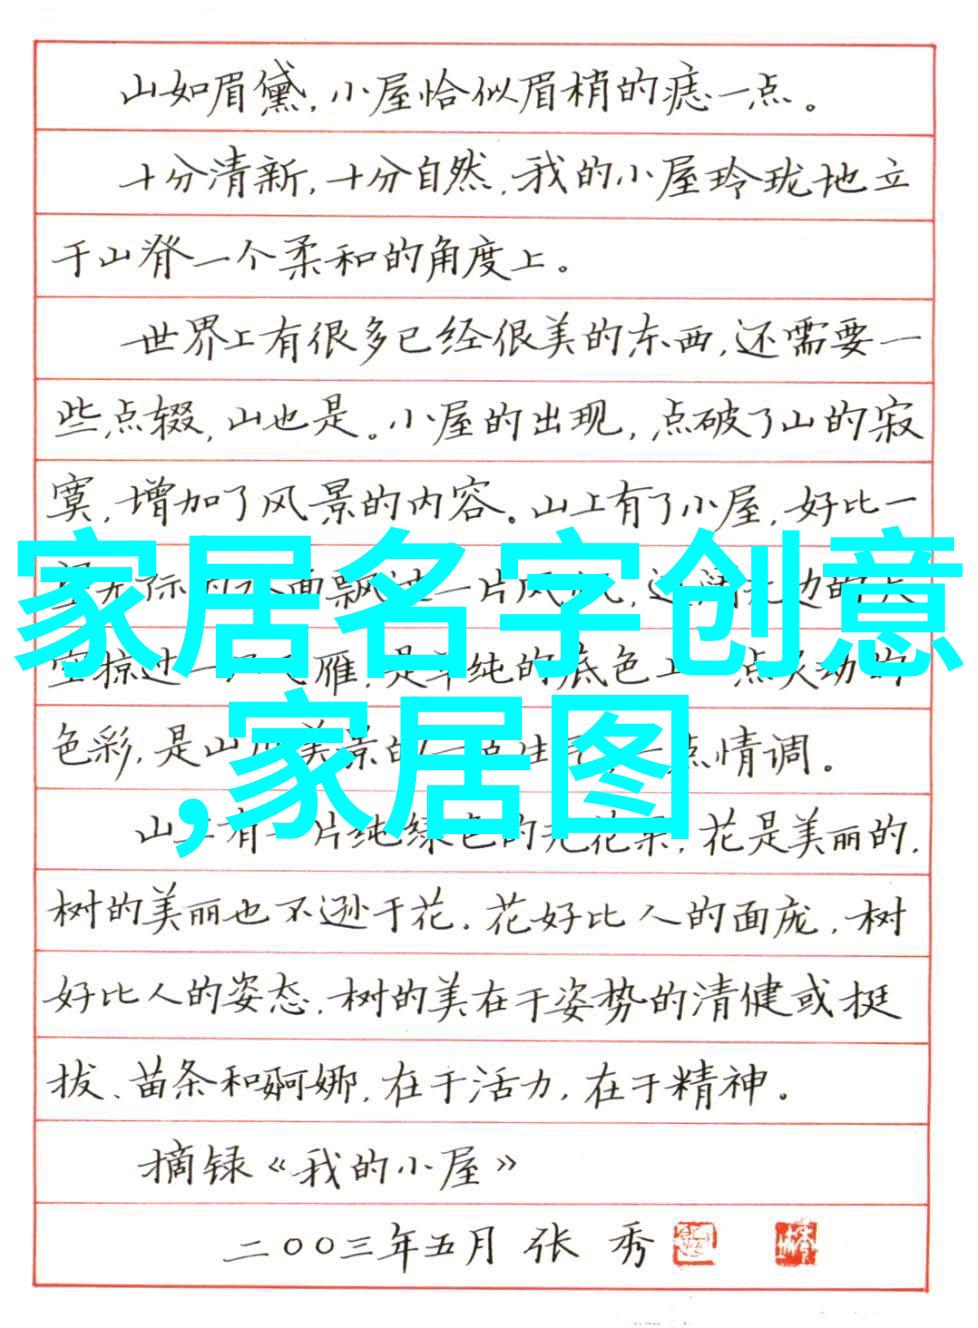 山如眉黛，小屋恰似眉梢的痣一点。
十分清新，十分自然，我的小屋玲珑地立
于山脊一个柔和的角度上。
世界上有很多已经很美的东西，还需要一
些点缀，山也是。小屋的出现，点破了山的寂
寞，增加了风景的内容。山上有了小屋，好比一
家居名字创意
面飘过一片风
雁，是单纯的底色上
,家居图
色彩，是山
情调。
山上有一片纯绿色的无花果，花是美丽的，
树的美丽也不逊于花。花好比人的面庞，树
好比人的姿态。树的美在于姿势的清健或挺
拔、苗条和婀娜，在于活力，在于精神。
摘录《我的小屋》
二〇〇三年五月 张 秀